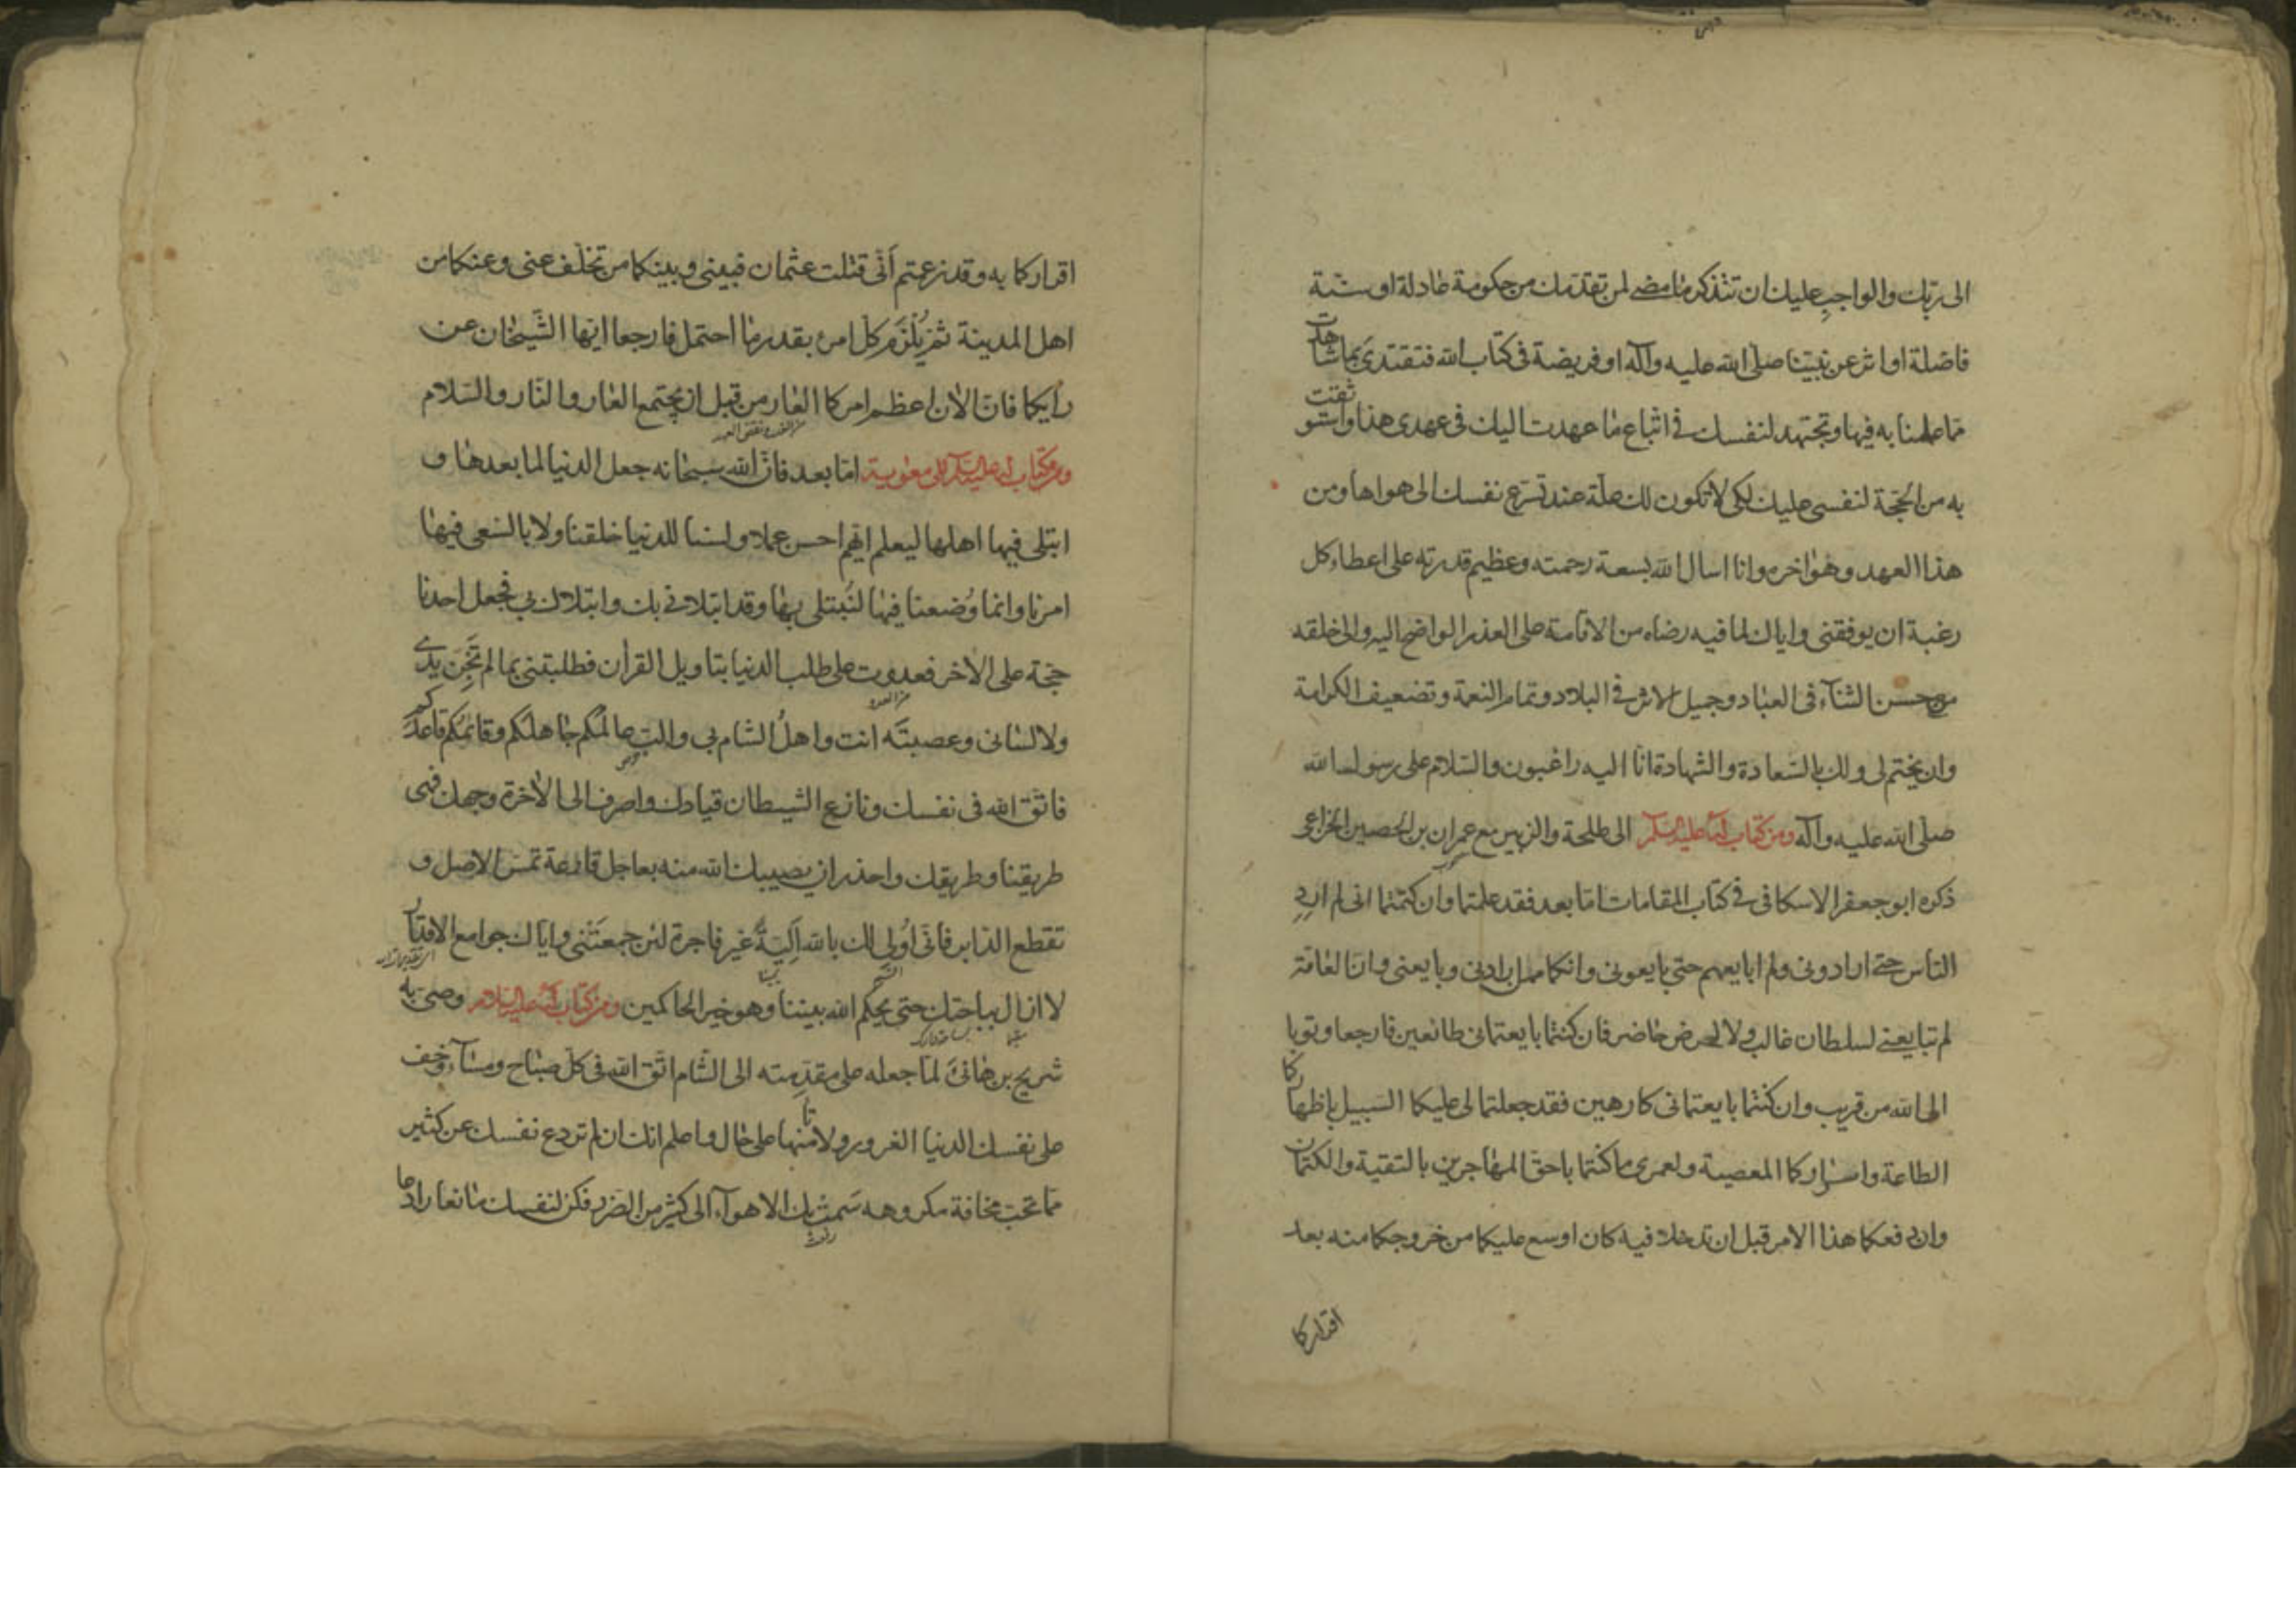 الى ربك والواجب عليك ان تتذكر ما مضى لمن تقدمك من حكومة عادلة او سنة
فاضلة او اثر عن نبينا صلى الله عليه وآله او فريضة فى كتاب الله فتقتدى بما شاهدت
مما عملنا به فيها وتجتهد لنفسك فى اتباع ما عهدت اليك فى عهدى هذا واستوثقت
به من الحجة لنفسى عليك لكى لا تكون لك علة عند تسرع نفسك الى هواها ومن
هذا العهد وهو اخره وانا اسال الله بسعة رحمته وعظيم قدرته على اعطاء كل
رغبة ان يوفقنى واياك لما فيه رضاه من الاقامة على العذر الواضح اليه والى خلقه
من حسن الثناء فى العباد وجميل الاثر فى البلاد وتمام النعمة وتضعيف الكرامة
وان يختم لى ولك بالسعادة والشهادة انا اليه راغبون والسلام على رسول الله
صلى الله عليه وآله ومن كتاب له عليه السلم الى طلحة والزبير مع عمران بن الحصين الخزاعى
ذكره ابو جعفر الاسكافى فى كتاب المقامات اما بعد فقد علمتما وان كتمتما انى لم ارد
الناس حتى ارادونى ولم ابايعهم حتى بايعونى وانكما ممن ارادنى وبايعنى وان العامة
لم تبايعنى لسلطان غالب ولا لحرض حاضر فان كنتما بايعتمانى طائعين فارجعا وتوبا
الى الله من قريب وان كنتما بايعتمانى كارهين فقد جعلتما لى عليكما السبيل باظهاركما
الطاعة واسراركما المعصية ولعمرى ما كنتما باحق المهاجرين بالتقية والكتمان
وان دفعكما هذا الامر قبل ان تدخلا فيه كان اوسع عليكما من خروجكما منه بعد
اقراركما
اقراركما به وقد زعمتم أنى قتلت عثمان فبينى وبينكما من تخلف عنى وعنكما من
اهل المدينة ثم يُلْزَم كل امرئ بقدر ما احتمل فارجعا ايها الشيخان عن
رأيكما فان الآن اعظم امركما العار من قبل ان يجتمع العار والنار والسلام
ومن كتاب له عليه السلم الى معوية اما بعد فان الله سبحانه جعل الدنيا لما بعدها و
ابتلى فيها اهلها ليعلم ايهم احسن عملا ولسنا للدنيا خلقنا ولا بالسعى فيها
امرنا وانما وُضعنا فيها لنُبتلى بها وقد ابتلانى بك وابتلاك بى فجعل احدنا
حجة على الاخر فعدوت على طلب الدنيا بتاويل القرآن فطلبتنى بما لم تَجْنِ يدى
ولا لسانى وعصبتَه انت واهلُ الشام بى والب عالمُكم جاهلكم وقائمُكم قاعدكم
فاتق الله فى نفسك ونازع الشيطان قيادك واصرف الى الآخرة وجهك فهى
طريقنا وطريقك واحذر ان يصيبك الله منه بعاجل قارعة تمس الاصل و
تقطع الدابر فانى اُولى لك بالله اَلِيّةً غير فاجرة لئن جمعتنى واياك جوامع الاقدار
لا ازال بباحتك حتى يحكم الله بيننا وهو خير الحاكمين ومن كتاب له عليه السلام وصى به
شريح بن هانئ لما جعله على مقدمته الى الشام اتق الله فى كل صباح ومساء وخف
على نفسك الدنيا الغرور ولا تامنها على حال واعلم انك ان لم تردع نفسك عن كثير
مما تحب مخافة مكروهه سَمت بك الاهواء الى كثير من الضرر فكن لنفسك مانعا رادعا